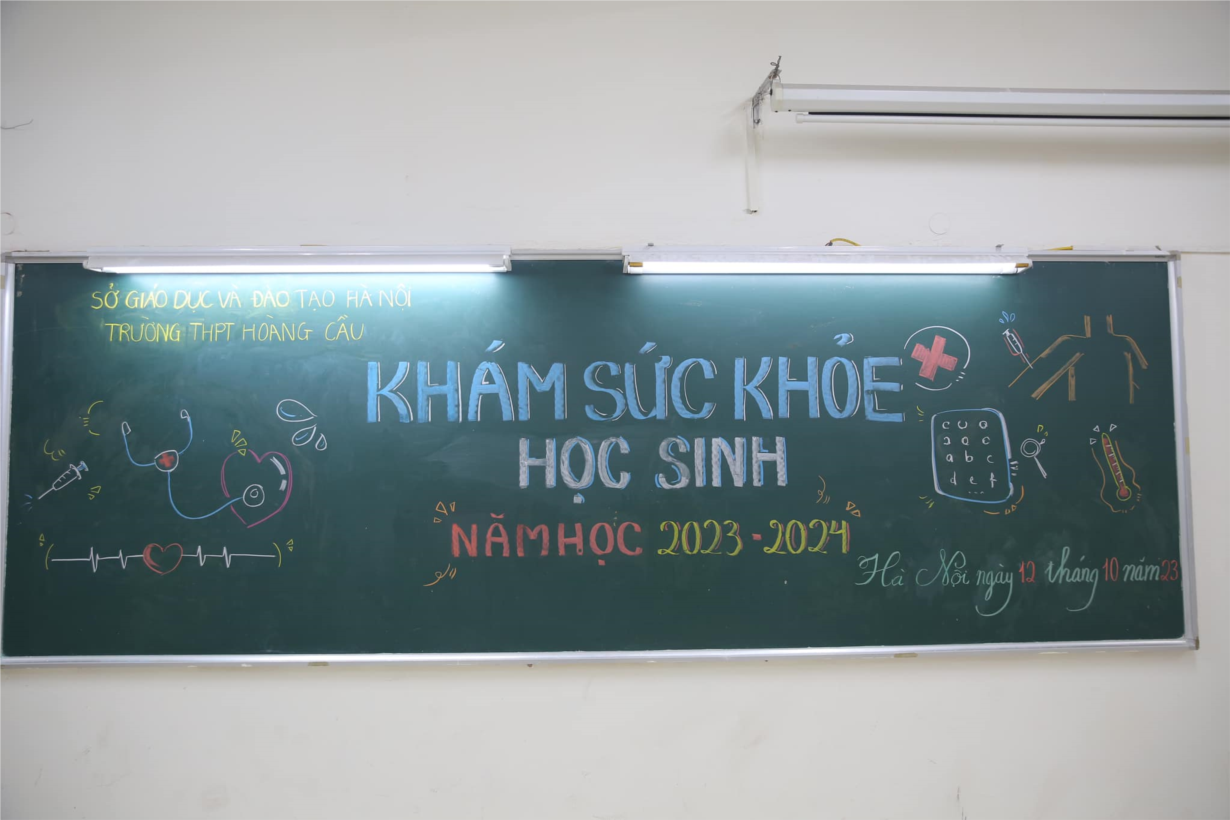 SỞ GIÁO DỤC VÀ ĐÀO TẠO HÀ NỘI
TRƯỜNG THPT HOÀNG CẦU
KHÁM SỨC KHỎE
HỌC SINH
NĂM HỌC 2023-2024
Hà Nội ngày 12 tháng 10 năm 23
a b c
d e f
...